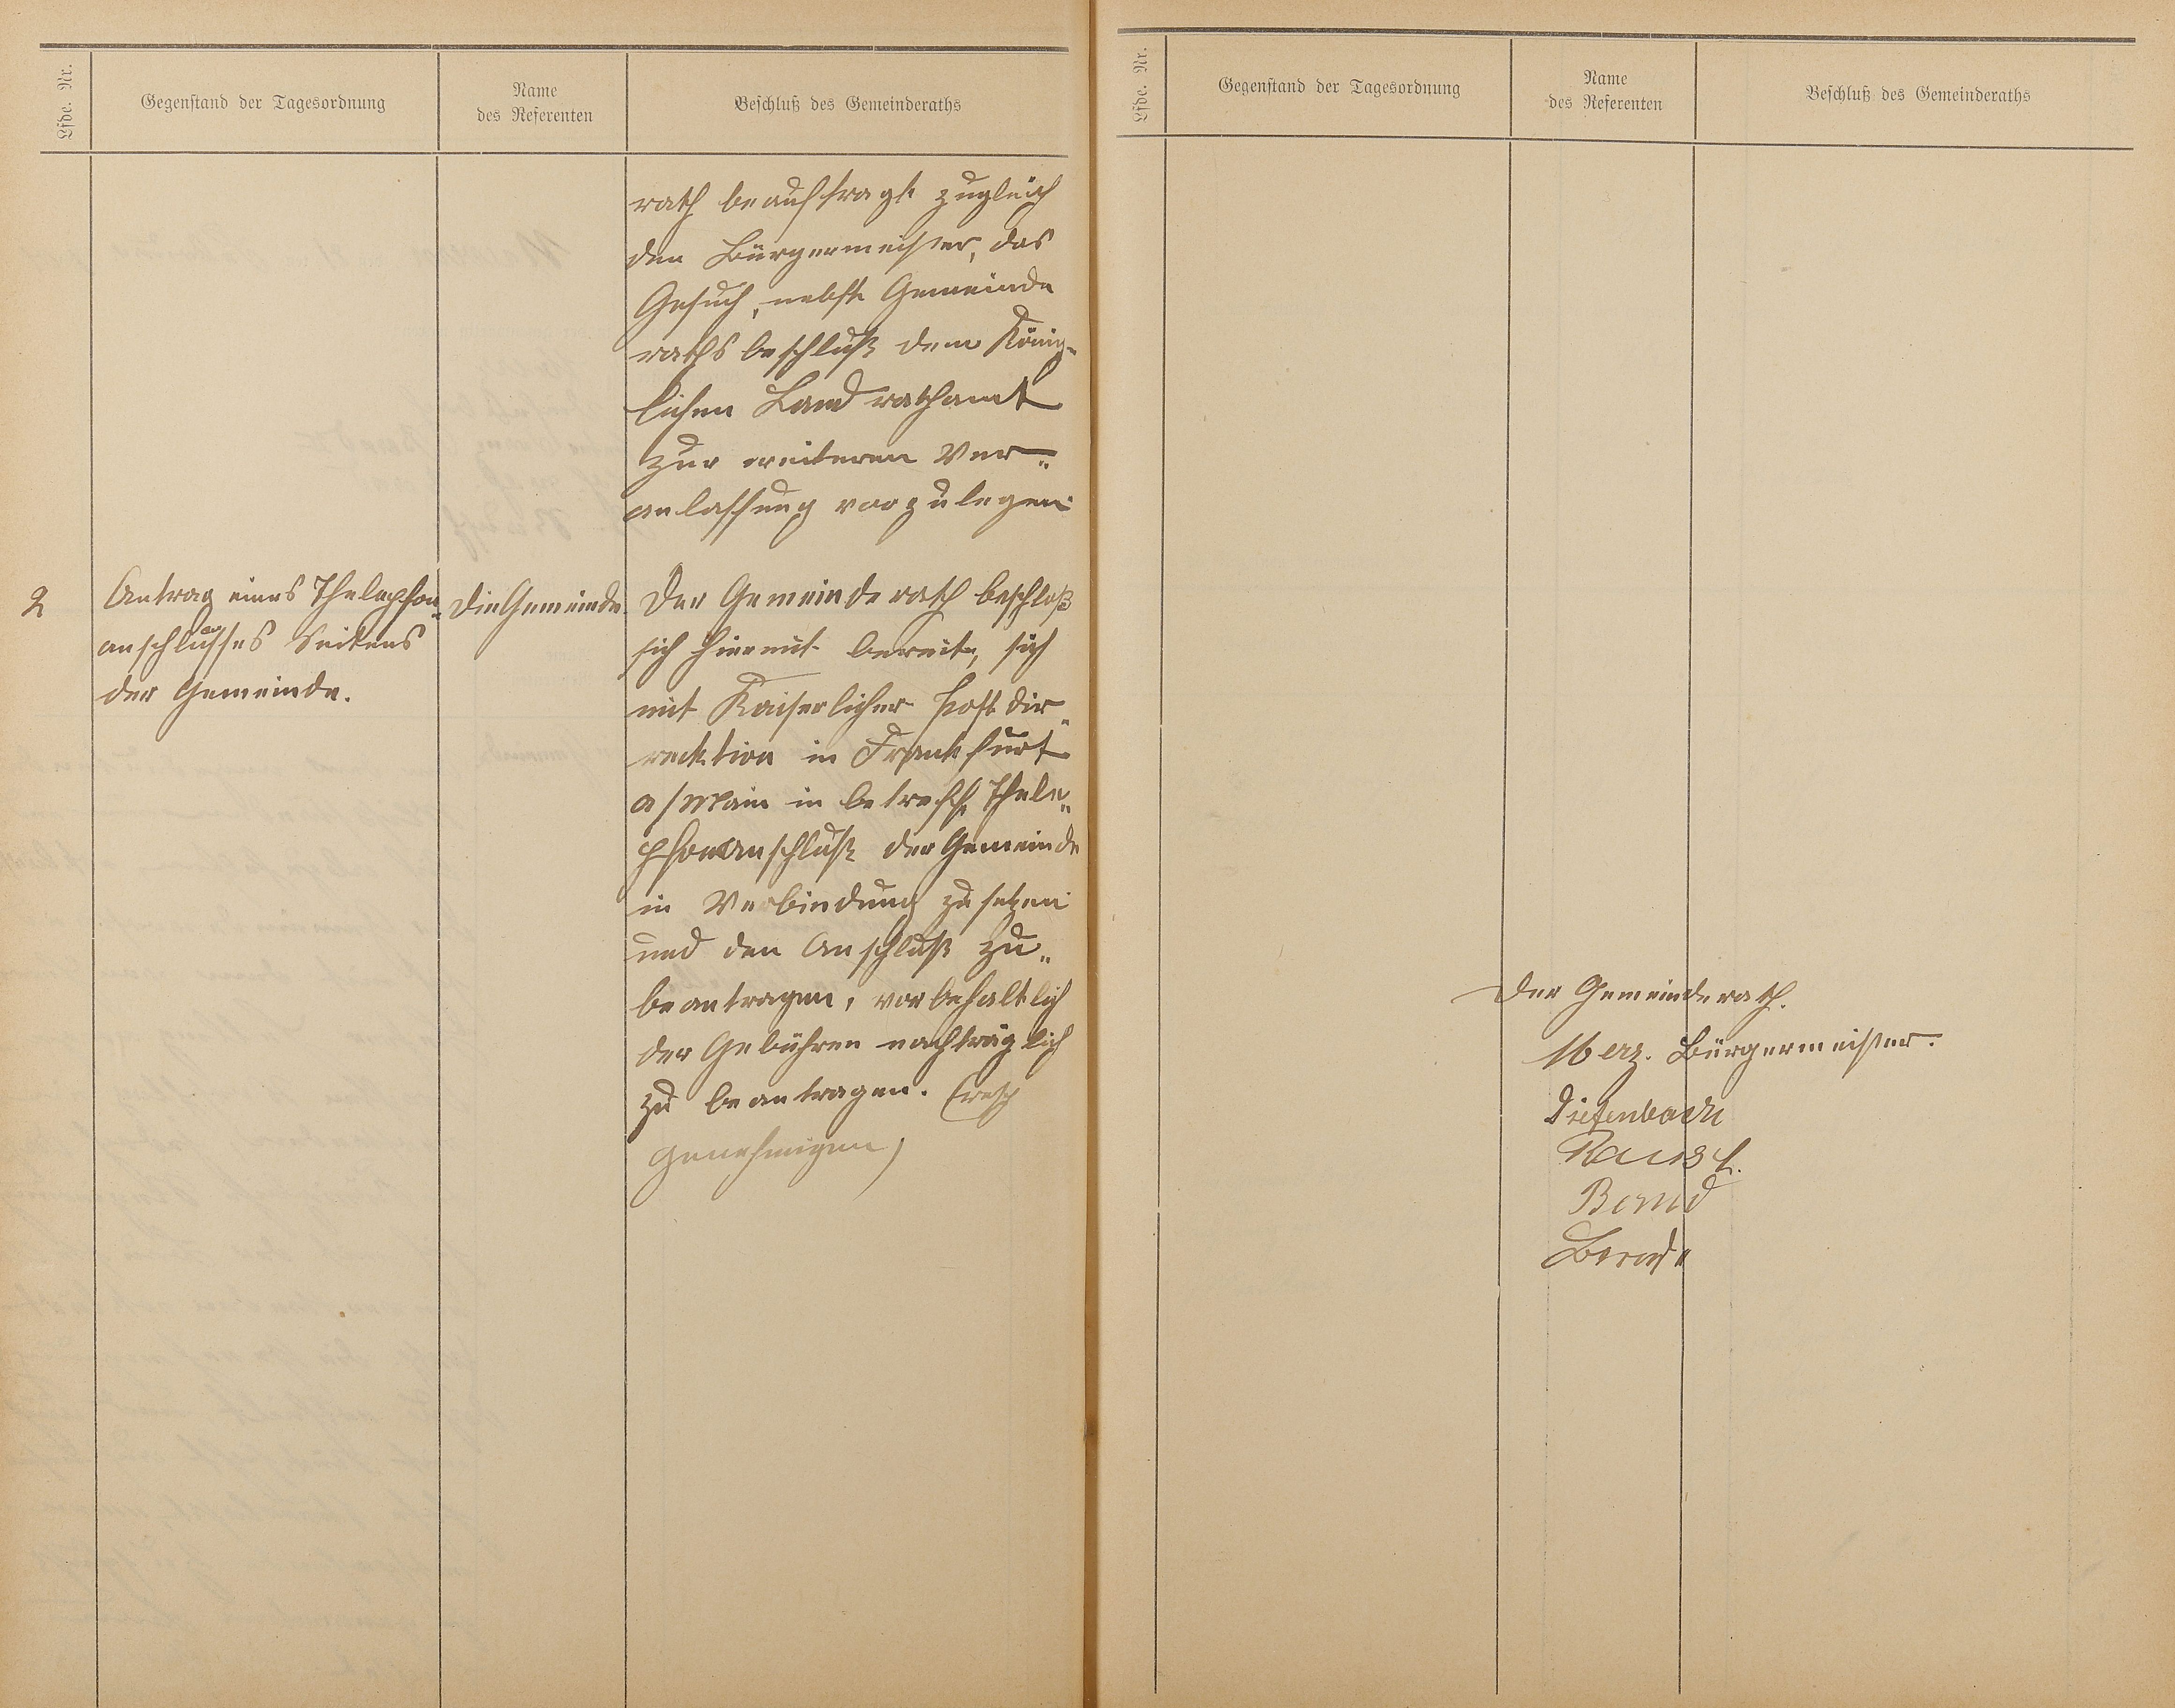 Lfde. Nr.
Gegenstand der Tagesordnung
Name
des Referenten
Beschluß des Gemeinderaths
rath beauftragt zugleich
den Bürgermeister, das
Gesuch, nebst Gemeinde
rathsbeschluß dem König-
lichen Landrathamt
zur weiteren Ver-
anlassung vorzulegen
2
Antrag eines Thelephon-
anschlusses Seitens
der Gemeinde.
die Gemeinde
Der Gemeinderath beschloß
sich hiermit bereit, sich
mit Kaiserlicher Postdir-
recktion in Frankfurt
a/Main in betreff Thele-
phonanschluß der Gemeinde
in Verbindung zu setzen
und den Anschluß zu-
beantragen, vorbehaltlich
der Gebühren nachträglich
zu beantragen. (resp
genehmigen)
Lfde. Nr.
Gegenstand der Tagesordnung
Name
des Referenten
Beschluß des Gemeinderaths
Der Gemeinderath.
Merz. Bürgermeister.
Diefenbach
Bernd